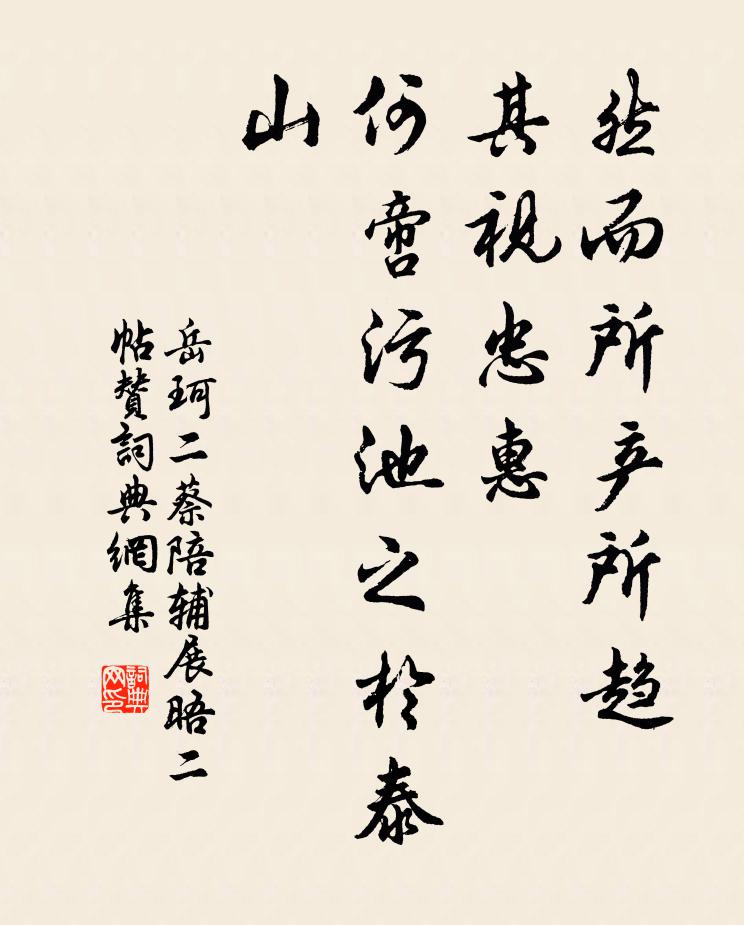 然而所产所趋
其视忠惠
何啻污池之於泰
山
岳珂二蔡陪辅展晤二
帖赞詞典網集
詞典
网印